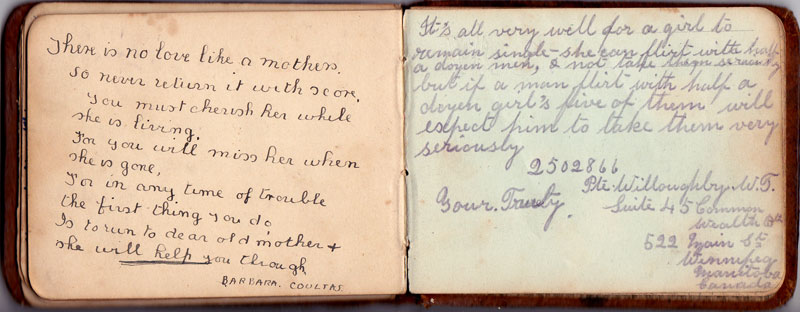 There is no love like a mothers.
So never return it with score,
You must cherish her while
she is living,
For you will miss her when
she is gone,
For in any time of trouble
the first thing you do,
Is to run to dear old mother +
she will help you through
BARBARA. COULTAS.
It's all very well for a girl to
remain single-she can flirt with half
a dozen men, & not take them seriously
but if a man flirt with half a
dozen girl's five of them will
expect him to take them very
seriously
2502866
Pte. Willoughby. W. T.
Your. Truly.
Suite 45 Common
wealth
522 Main St
Winnipeg
Manitoba
Canada